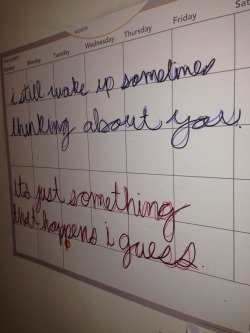 MONTH
Monday Tuesday Wednesday Thursday Friday Sat
i still wake up sometimes
thinking about you.
its just something
that happens i guess.